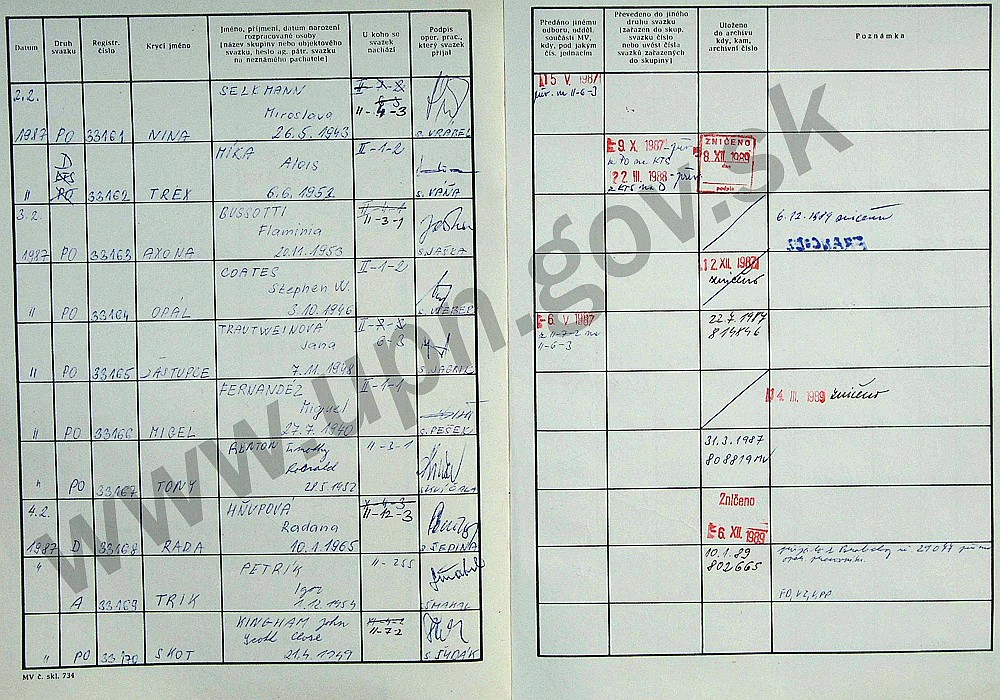 Datum
Druh svazku
Registr. číslo
Krycí jméno
Jméno, příjmení, datum narození
rozpracované osoby
(název skupiny nebo objektového
svazku, heslo ag. pátr. svazku
na neznámého pachatele)
U koho se
svazek
nachází
Podpis
oper. prac.,
který svazek
přijal
Předáno jinému
odboru, odděl.
součásti MV,
kdy, pod jakým
čís. jednacím
Převedeno do jiného
druhu svazku
(zařazen do skup.
svazku číslo
nebo uvést čísla
svazků zařazených
do skupiny)
Uloženo
do archivu
kdy, kam,
archivní číslo
Poznámka
2.2. SELKMANN
Miroslava II-4-3
1987 PO 33161 NINA 26.5.1943 s. VRÁBEL
15 V. 1987
II-6-3
D MÍKA Alois II-1-2
" PO 33162 TREX 6.6.1951 s. VÁŇA
9. X. 1987
na KTS
22. III. 1988
z KTS na D
ZNIČENO
8. XII. 1989
podpis
3.2. BUSSOTTI II-4-1
Flaminia II-3-1
1987 PO 33163 AXONA 20.11.1953 s. JAŠKA
6.12.1989 zničeno
COATES II-1-2
Stephen W.
" PO 33164 OPÁL 3.10.1946 s. WEBER
12. XII. 1987
zničeno
TRAUTWEINOVÁ
Jana 6-3
" PO 33165 ZÁSTUPCE 7.11.1948
6. V. 1987
z II-7-2 na
II-6-3
22.7.1987
814846
FERNANDÉZ II-1-1
Miguel
" PO 33166 MIGEL 27.7.1940 s. PEŠEK
14. III. 1989 zničeno
Timothy II-3-1
" PO 33167 TONY 28.5.1952
31.3.1987
808819 MV
4.2. HŇUPOVÁ II-4-3
Radana II-12-3
1987 D 33168 RADA 10.1.1965 s. ŠEDINA
Zničeno
6. XII. 1989
" PETRÍK II-255
Igor
A 33169 TRIK 1.12.1954
10.1.89
802665
KINGHAM John
II-7-2
" PO 33170 SKOT 21.4.1949
MV č. skl. 734
www.upn.gov.sk